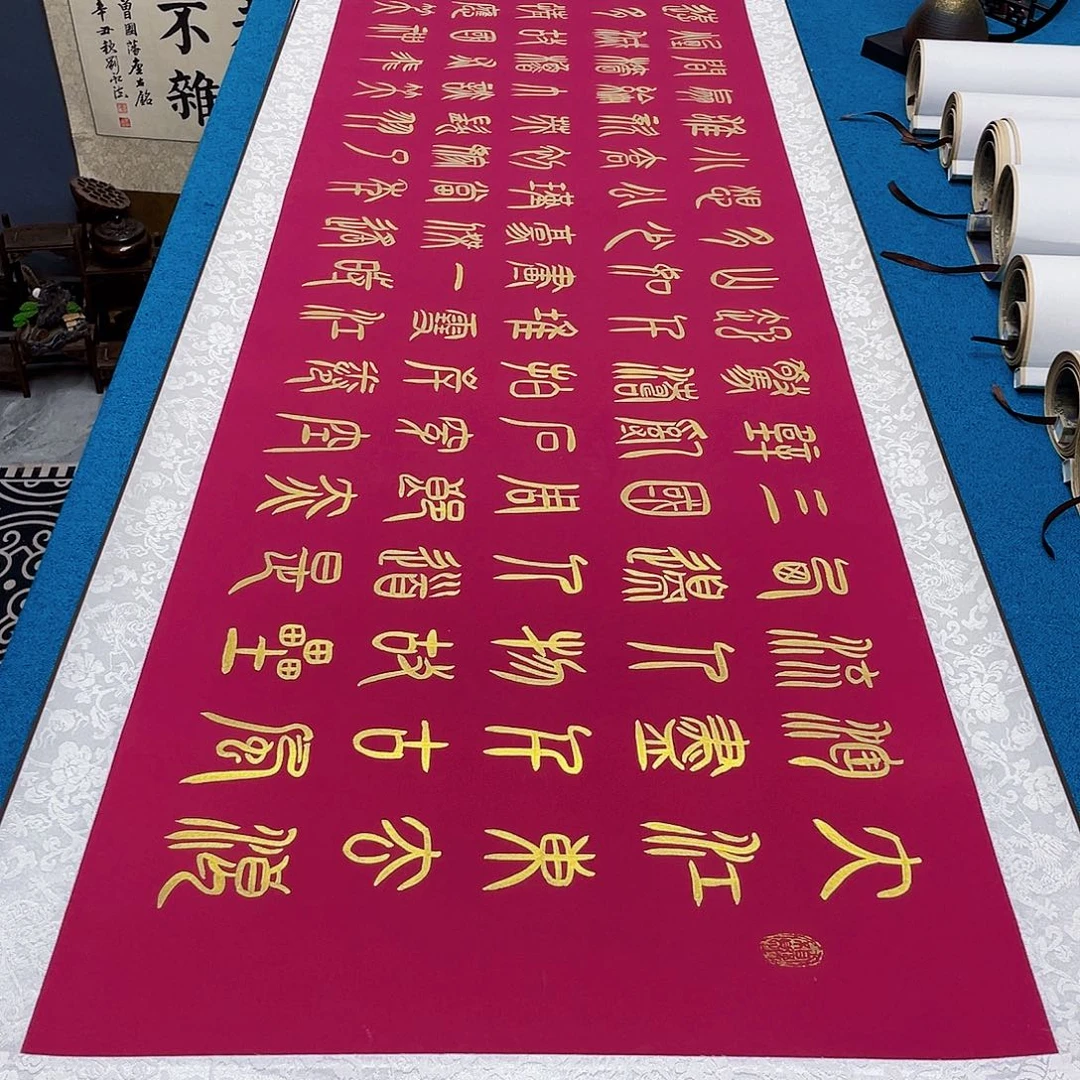 大江東去浪
淘盡千古風
流人物故壘
西邊人道是
三國周郎赤
壁亂石穿空
驚濤拍岸捲
起千堆雪江
山如畫一時
多少豪傑遙
想公瑾當年
小喬初嫁了
雄姿英發羽
扇綸巾談笑
間檣櫓灰飛
煙滅故國神
多情應笑
不雜
曾國藩座右銘
辛丑秋劉